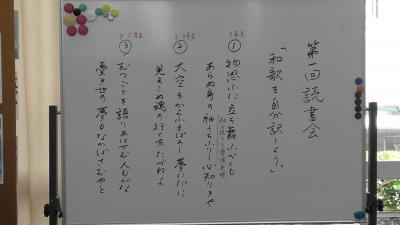 第一回読書会
「和歌を自分訳しよう。」
1年生
①物思ふに立ち舞ふべくも
あらぬ身の袖うちふりし心知りきや
2、3年生
②大空をかよふまぼろし夢にだに
見えこぬ魂の行く方たづねよ
③むつごとを語りあはせむ人もがな
憂き世の夢もなかばさむやと